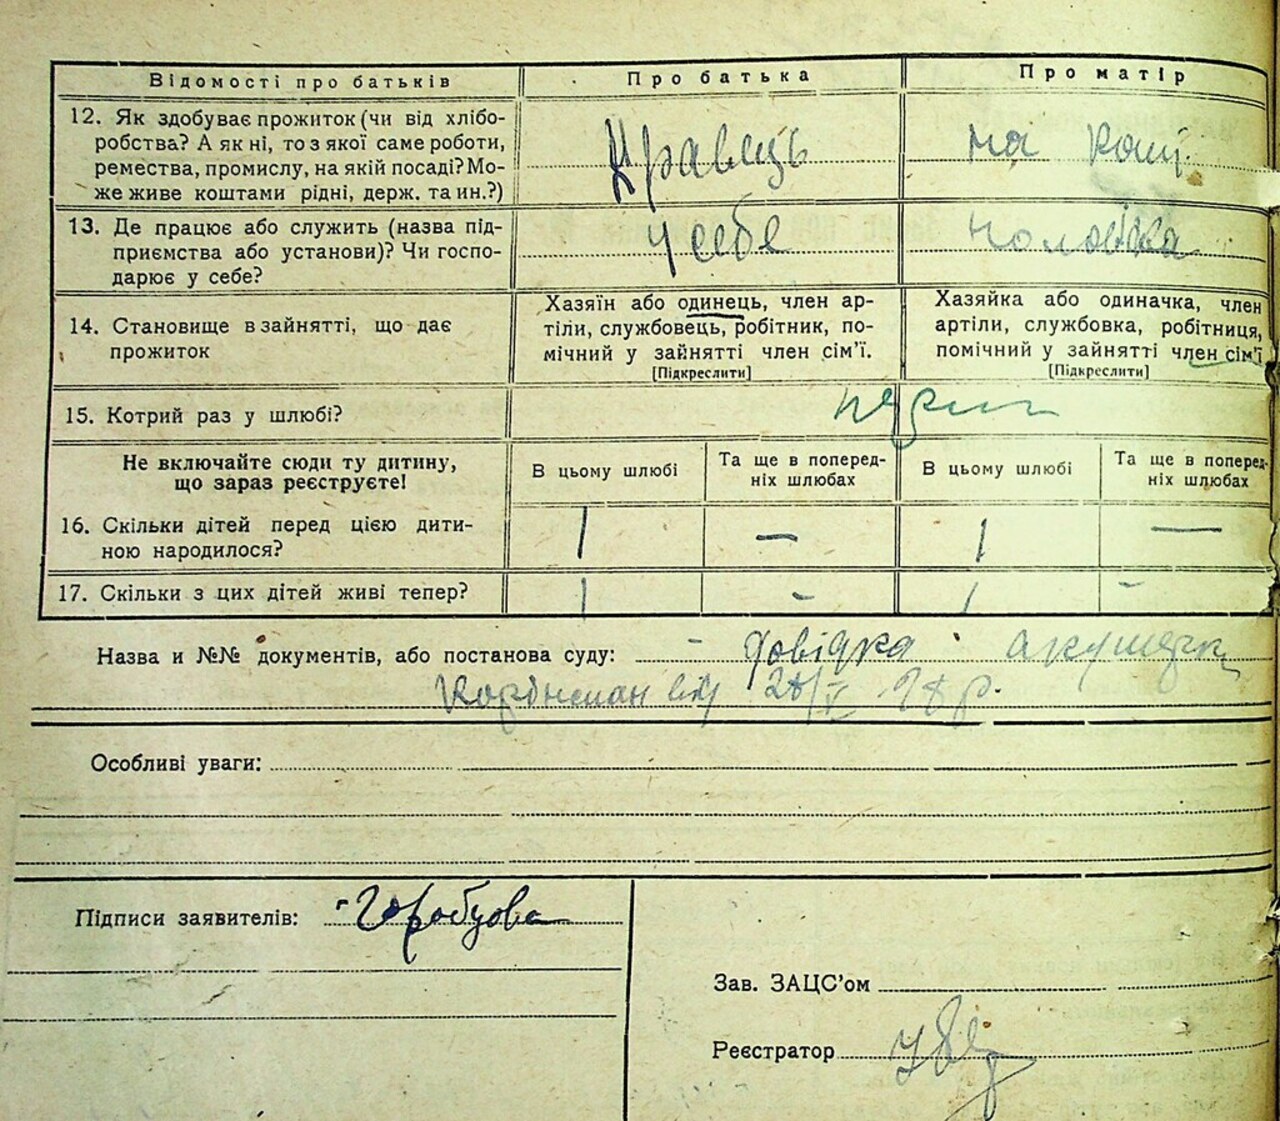 Відомості про батьків
Про батька
Про матір
12. Як здобуває прожиток (чи від хлібо-
робства? А як ні, то з якої саме роботи,
ремества, промислу, на якій посаді? Мо-
же живе коштами рідні, держ. та ин.?)
Кравець
на кошт.
13. Де працює або служить (назва під-
приємства або установи)? Чи госпо-
дарює у себе?
У себе
чоловіка
14. Становище в зайнятті, що дає
прожиток
Хазяїн або одинець, член ар-
тіли, службовець, робітник, по-
мічний у зайнятті член сім'ї.
[Підкреслити]
Хазяйка або одиначка, член
артіли, службовка, робітниця,
помічний у зайнятті член сім'ї
[Підкреслити]
15. Котрий раз у шлюбі?
Не включайте сюди ту дитину,
що зараз реєструєте!
В цьому шлюбі
Та ще в поперед-
ніх шлюбах
В цьому шлюбі
Та ще в поперед-
ніх шлюбах
16. Скільки дітей перед цією дити-
ною народилося?
1 — 1 —
17. Скільки з цих дітей живі тепер?
1 - 1 -
Назва и №№ документів, або постанова суду: - Довідка акушерки
від 28/V 28 р.
Особливі уваги:
Підписи заявителів: Горобцова
Зав. ЗАЦС'ом
Реєстратор